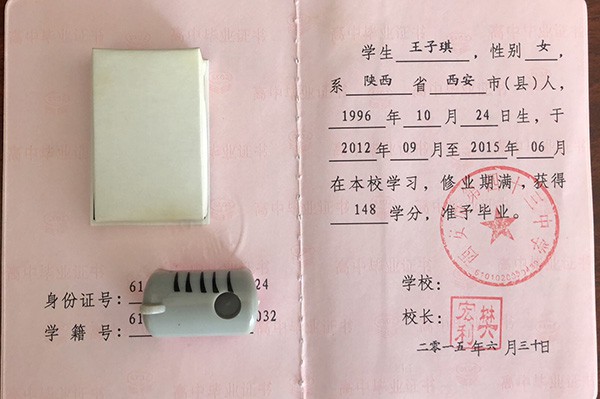 身份证号：61 24
学籍号：61 032
学生 王子琪，性别 女，
系 陕西 省 西安 市(县)人，
1996 年 10 月 24 日生，于
2012 年 09 月至 2015 年 06 月
在本校学习，修业期满，获得
148 学分，准予毕业。
学校：
校长：
樊宏利
二〇一五年六月三十日